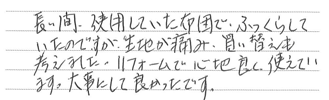 長い間、使用していた布団で、ふっくらして
いたのですが、生地が痛み、買い替えも
考えました。リフォームで心地良く、使えてい
ます。大事にして良かったです。